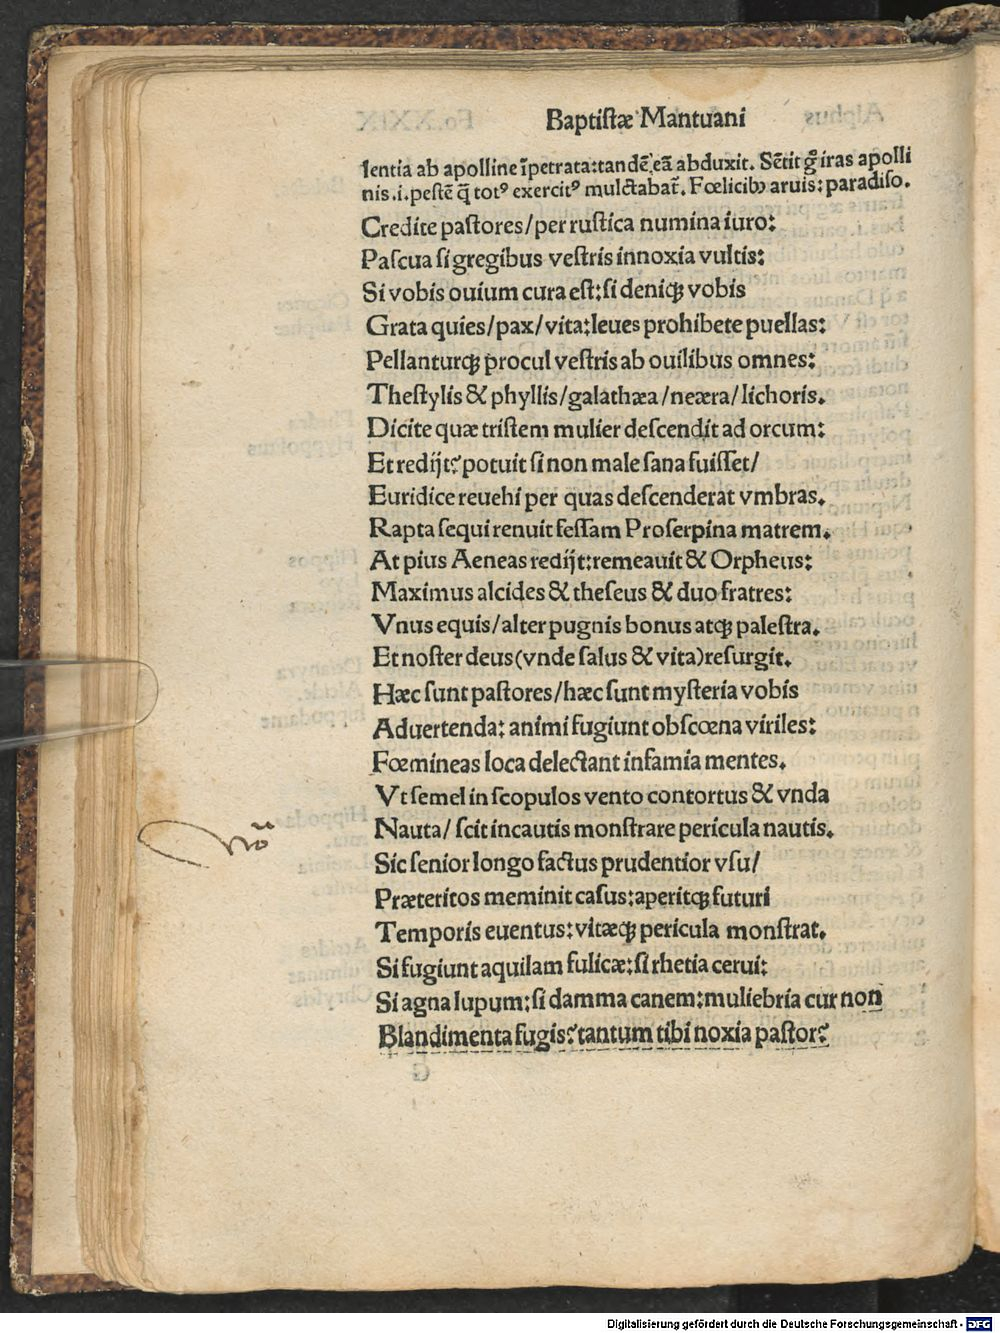 Baptiſtæ Mantuani
lentia ab apolline ĩpetrata:tandẽ;eã abduxit. Sẽtit g̊ iras apolli
nis.i.peſtẽ q̃ totꝰ exercitꝰ mulctabat̃. Fœlicibꝫ aruis:paradiſo.
Credite paſtores/per ruſtica numina iuro:
Paſcua ſi gregibus veſtris innoxia vultis:
Si vobis ouium cura eſt:ſi deniqꝫ vobis
Grata quies/pax/vita:leues prohibete puellas:
Pellanturqꝫ procul veſtris ab ouilibus omnes:
Theſtylis & phyllis/galathæa/neæra/lichoris.
Dicite quæ triſtem mulier deſcendit ad orcum:
Et redijt?potuit ſi non male ſana fuiſſet/
Euridice reuehi per quas deſcenderat vmbras.
Rapta ſequi renuit feſſam Proſerpina matrem.
At pius Aeneas redijt:remeauit & Orpheus:
Maximus alcides & theſeus & duo fratres:
Vnus equis/alter pugnis bonus atqꝫ paleſtra.
Et noſter deus(vnde ſalus & vita)reſurgit.
Hæc ſunt paſtores/hæc ſunt myſteria vobis
Aduertenda: animi fugiunt obſcœna viriles:
Fœmineas loca delectant infamia mentes.
Vt ſemel in ſcopulos vento contortus & vnda
Nauta/ ſcit incautis monſtrare pericula nautis.
Sic ſenior longo factus prudentior vſu/
Præteritos meminit caſus:aperitqꝫ futuri
Temporis euentus:vitæqꝫ pericula monſtrat.
Si fugiunt aquilam fulicæ:ſi rhetia cerui:
Si agna lupum:ſi damma canem:muliebria cur non
Blandimenta fugis?tantum tibi noxia paſtor?
Digitalisierung gefördert durch die Deutsche Forschungsgemeinschaft - DFG